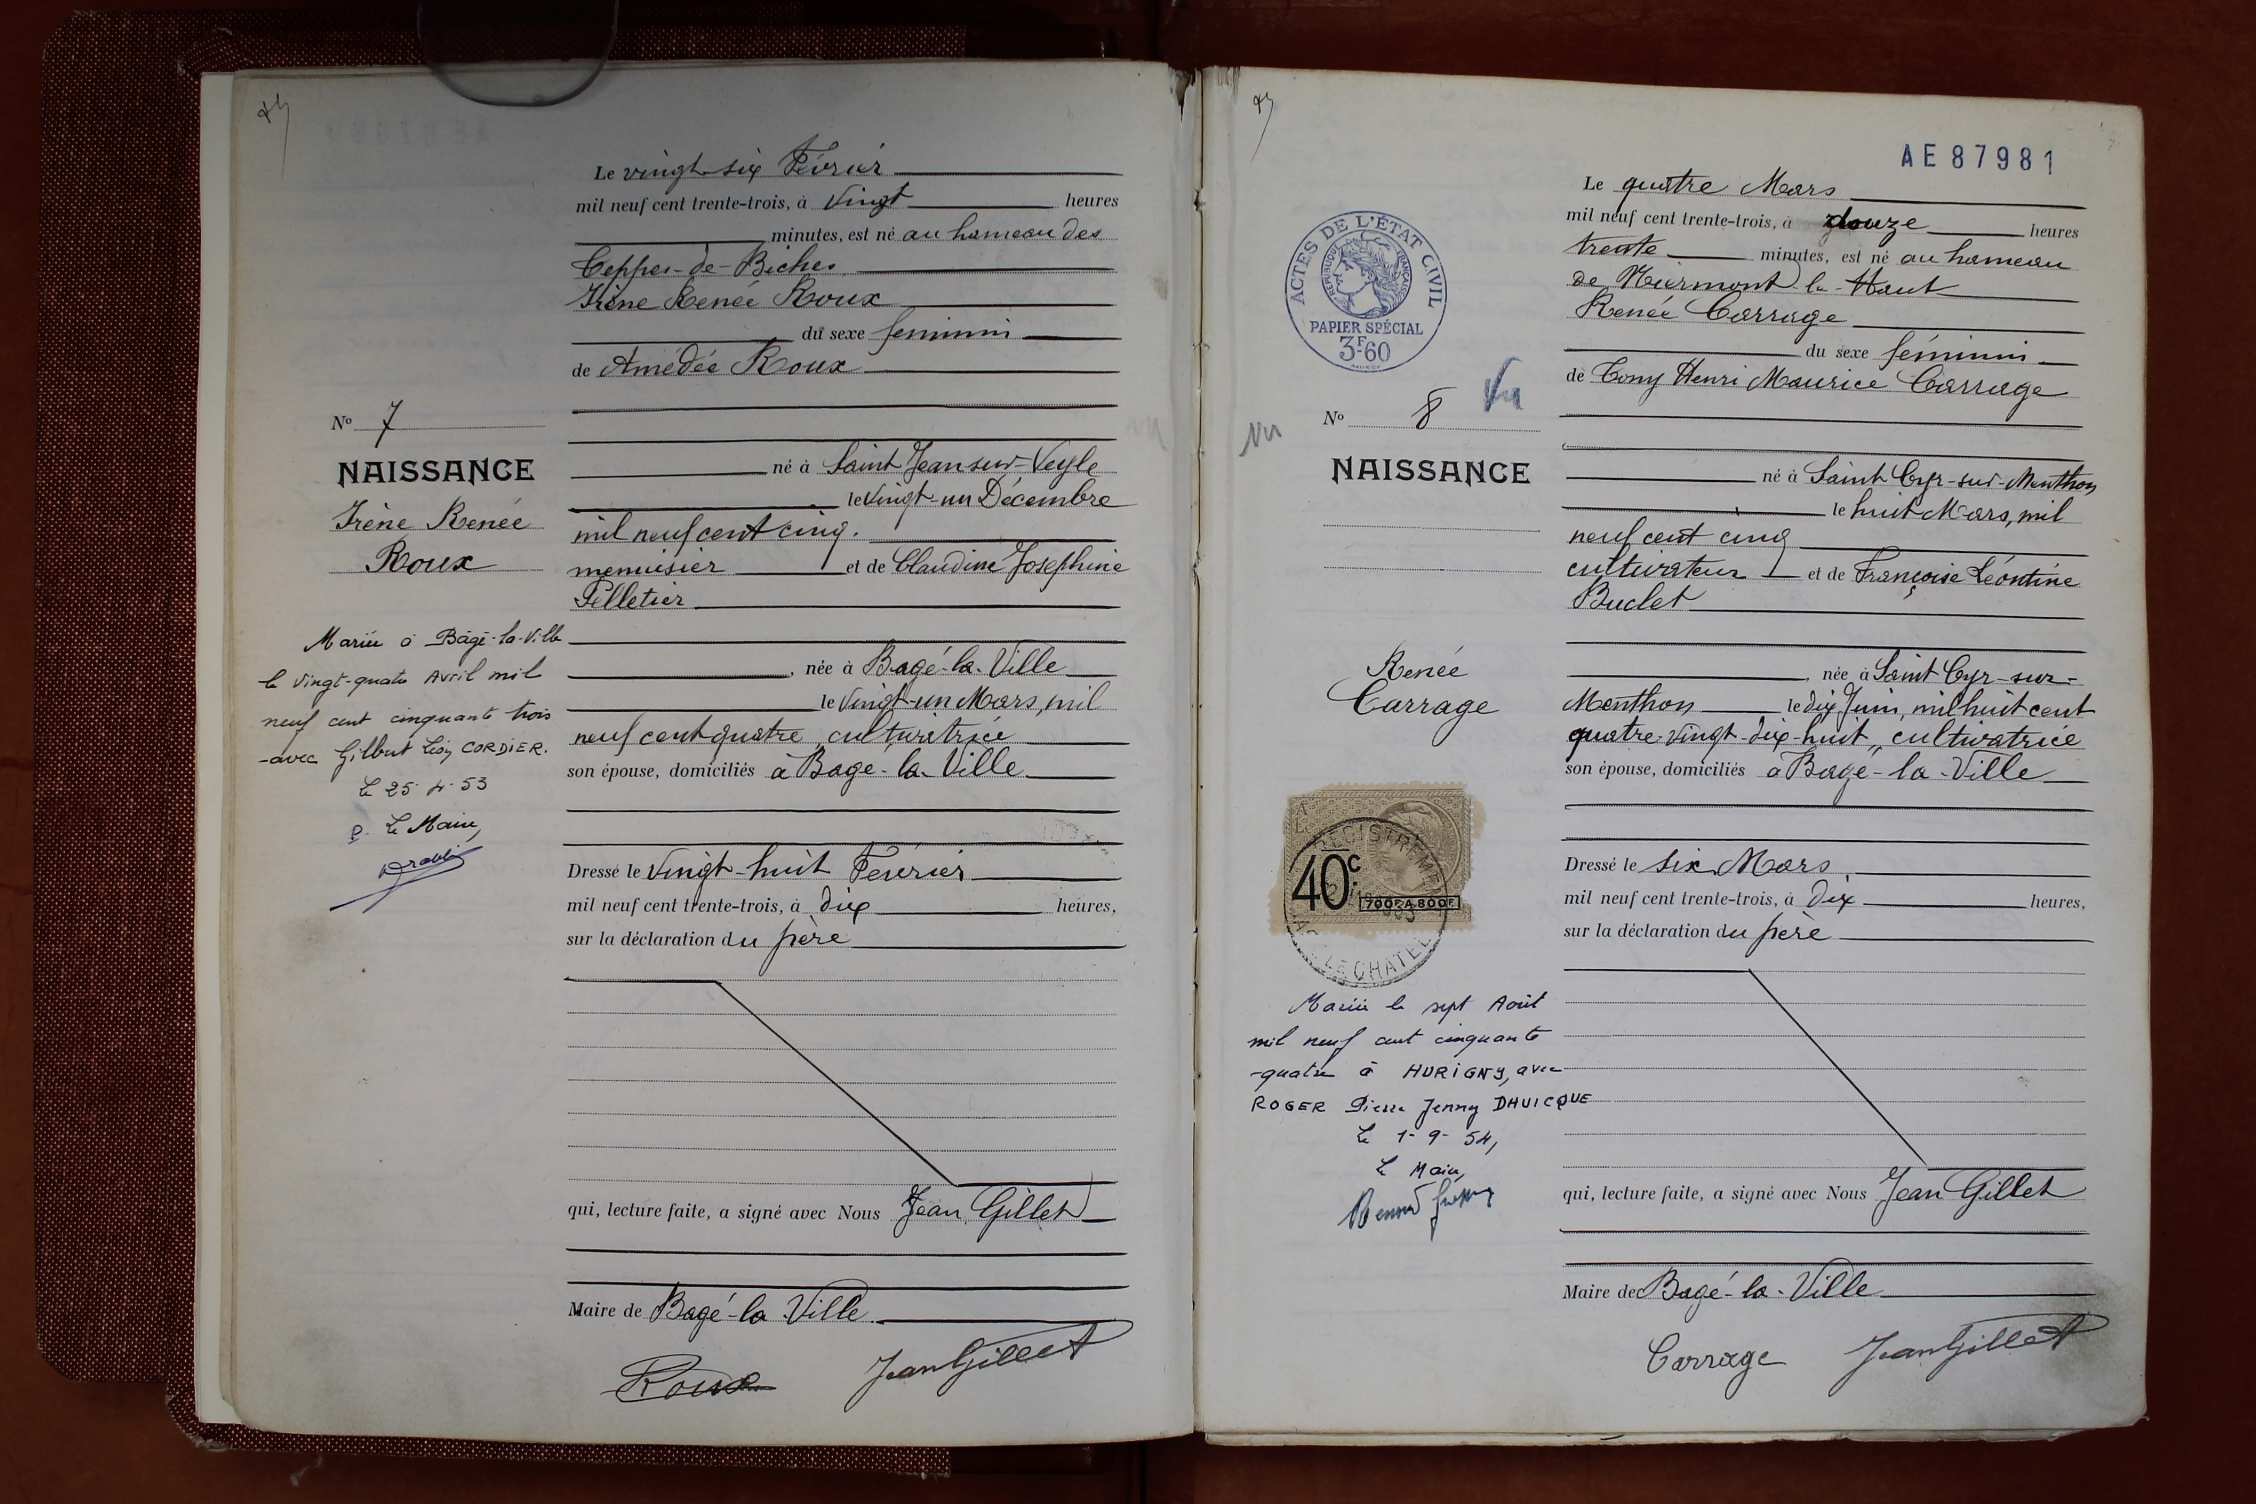 Le vingt-six Février
mil neuf cent trente-trois, à vingt heures
minutes, est né au hameau des
Teppes-de-Biches
Irène Renée Roux
du sexe féminin
de Amédée Roux
No 7
NAISSANCE
Irène Renée
Roux
né à Saint Jean sur-Veyle
le vingt-un Décembre
mil neuf cent cinq.
menuisier et de Claudine Josephine
Pelletier
née à Bagé-la-Ville
le vingt-un Mars, mil
neuf cent quatre, cultivatrice
son épouse, domiciliés à Bagé-la-Ville
Mariée à Bâgé-la-Ville
le vingt-quatre Avril mil
neuf cent cinquante trois
-avec Gilbert Léon CORDIER.
Le 25-4-53
P. Le Maire,
Dressé le vingt-huit Février
mil neuf cent trente-trois, à dix heures,
sur la déclaration du père
qui, lecture faite, a signé avec Nous Jean Gillet
Maire de Bagé-la-Ville
Roux Jean Gillet
AE 87981
Le quatre Mars
mil neuf cent trente-trois, à douze heures
trente minutes, est né au hameau
de le-Haut
Renée Carrage
du sexe féminin
de Tony Henri Maurice Carrage
ACTES DE L'ÉTAT CIVIL
RÉPUBLIQUE FRANÇAISE
PAPIER SPÉCIAL
3F60
Vu
No 8
Vu
NAISSANCE
Renée
Carrage
né à Saint Cyr-sur-Menthon
le huit Mars, mil
neuf cent cinq
cultivateur et de Françoise Léontine
Buclet
née à Saint Cyr-sur-
Menthon le dix Juin, mil huit cent
quatre-vingt-dix-huit, cultivatrice
son épouse, domiciliés à Bagé-la-Ville
40c
700F A 800F
Mariée le sept Août
mil neuf cent cinquante
-quatre à HURIGNY, avec
ROGER Pierre Jenny DHUICQUE
Le 1-9-54,
Le Maire,
Dressé le six Mars
mil neuf cent trente-trois, à dix heures,
sur la déclaration du père
qui, lecture faite, a signé avec Nous Jean Gillet
Maire de Bagé-la-Ville
Carrage Jean Gillet